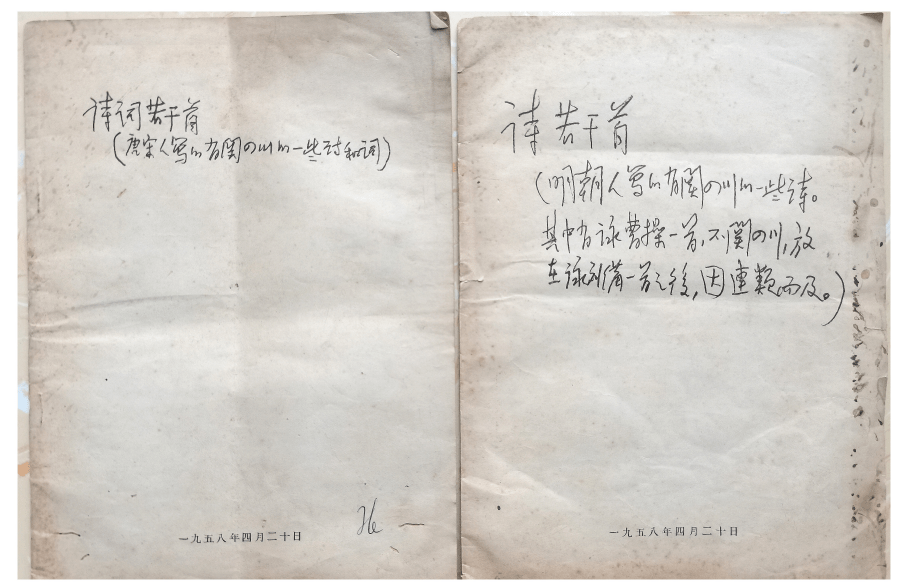 诗词若干首
(唐宋人写的有関四川的一些诗和词)
26
一九五八年四月二十日
诗若干首
(明朝人写的有関四川的一些诗。
其中有詠曹操一首,不関四川,放
在詠刘備一首之後,因連類而及。)
一九五八年四月二十日